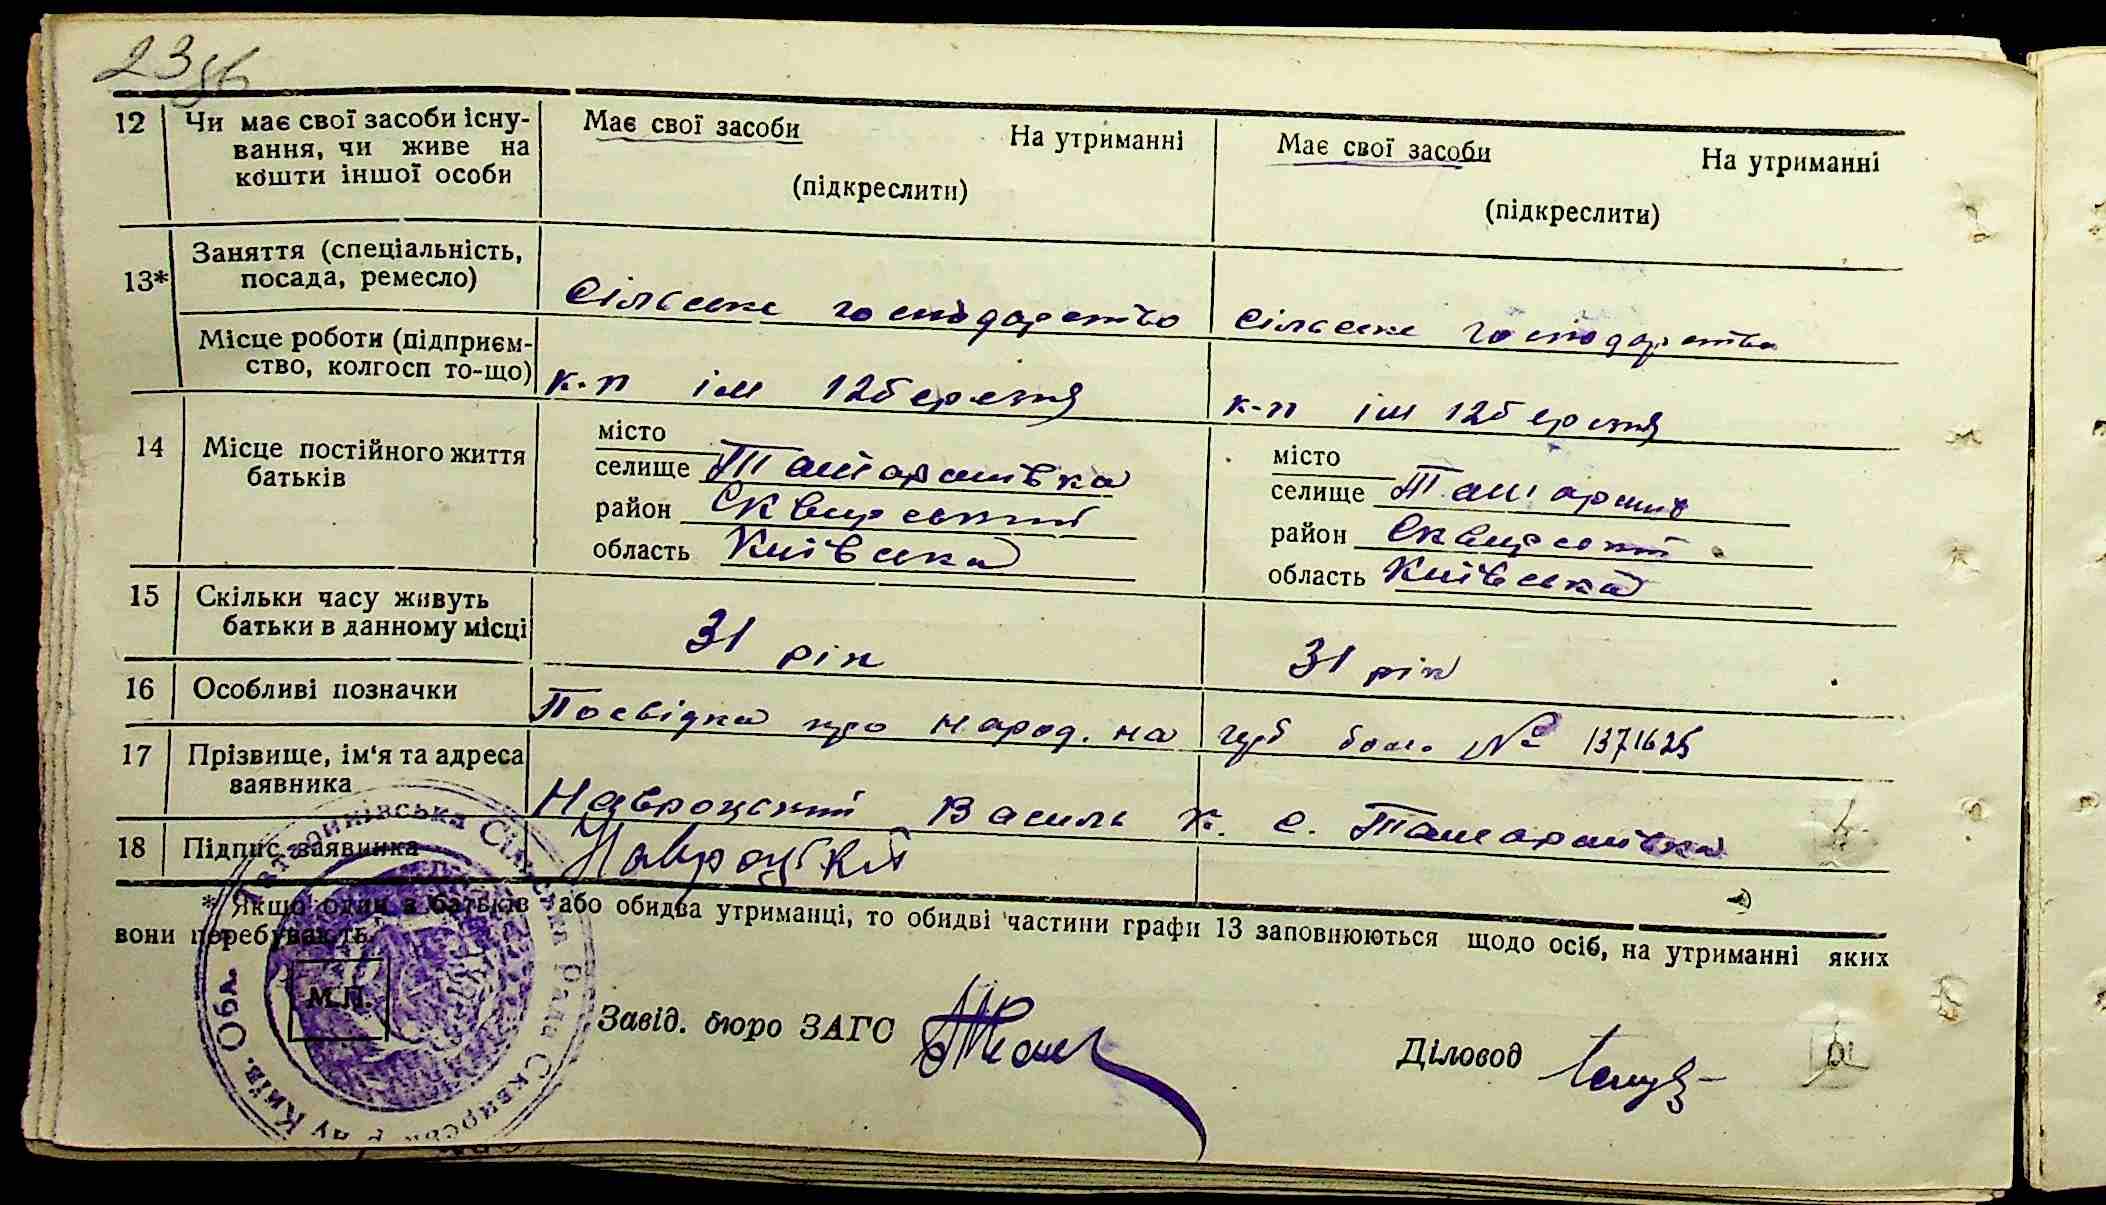 23зв
12 Чи має свої засоби існу-
вання, чи живе на
кошти іншої особи
Має свої засоби На утриманні
(підкреслити)
Має свої засоби На утриманні
(підкреслити)
13* Заняття (спеціальність,
посада, ремесло)
Сільське господарство
Сільське господарство
Місце роботи (підприєм-
ство, колгосп то-що)
к-п ім 12 березня
к-п ім 12 березня
14 Місце постійного життя
батьків
місто
селище Татаринівка
район Сквирський
область Київська
місто
селище
район Сквирський
область Київська
15 Скільки часу живуть
батьки в данному місці
31 рік
31 рік
16 Особливі позначки
Посвідка про народ. на № 1371625
17 Прізвище, ім'я та адреса
заявника
Навроцький Василь К. с. Татаринівка
18 Підпис заявника
Навроцький
* Якщо один з батьків або обидва утриманці, то обидві частини графи 13 заповнюються щодо осіб, на утриманні яких
вони перебувають.
М.П.
Завід. бюро ЗАГС
Діловод
Сільська Рада Сквирськ Р-ну Київ. Обл.